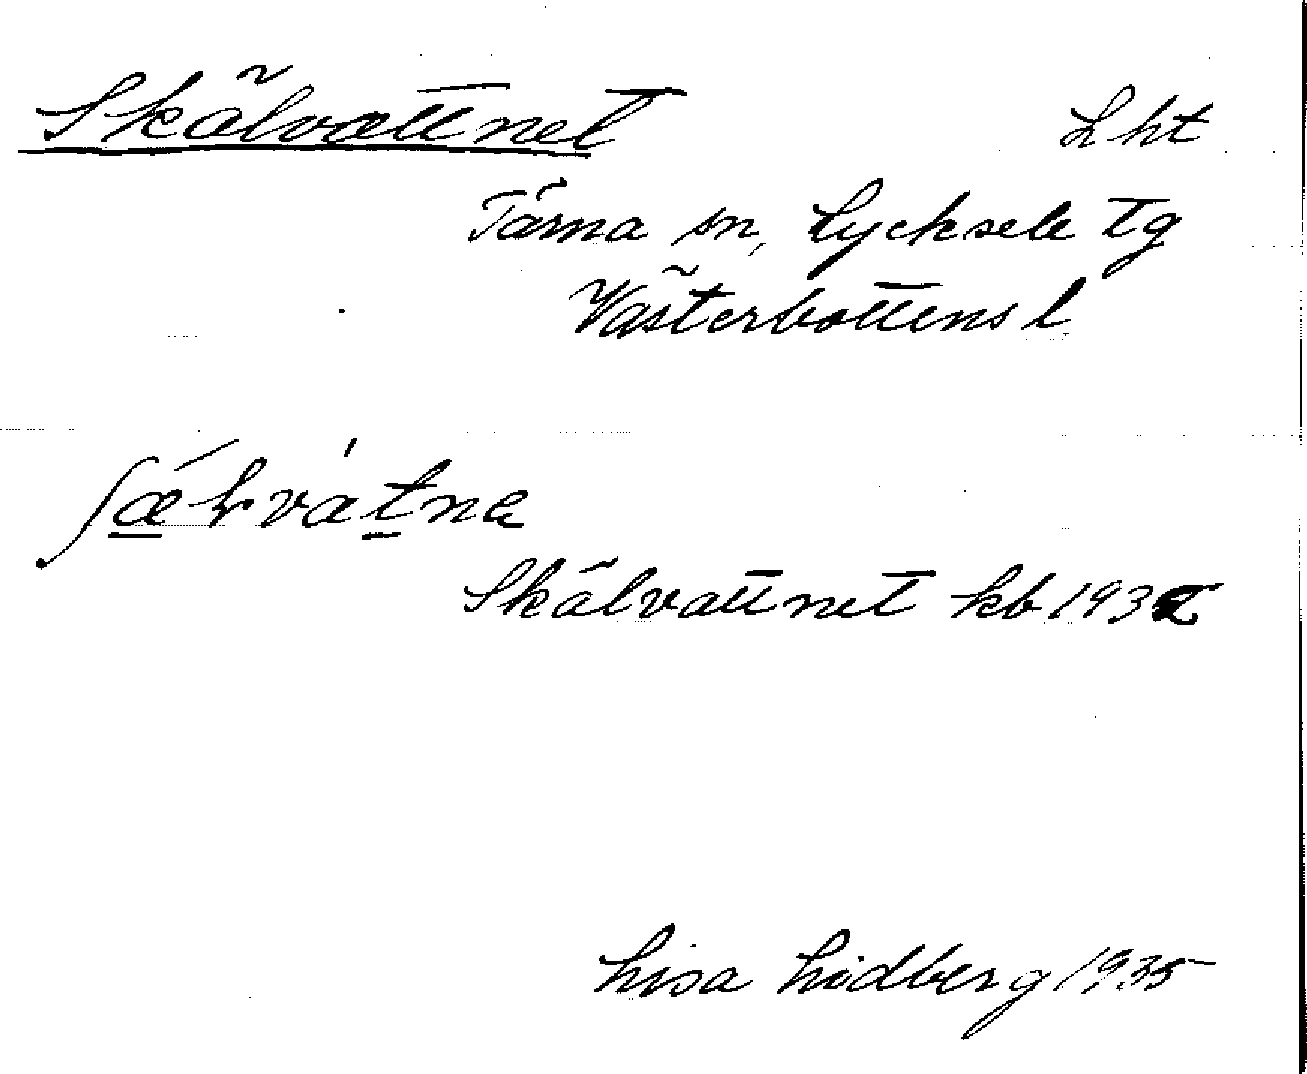 Skälvattnet Lht
Tärna sn, Lycksele tg
Västerbottens l
Skälvattnet kb 1932
Lisa Lidberg 1935